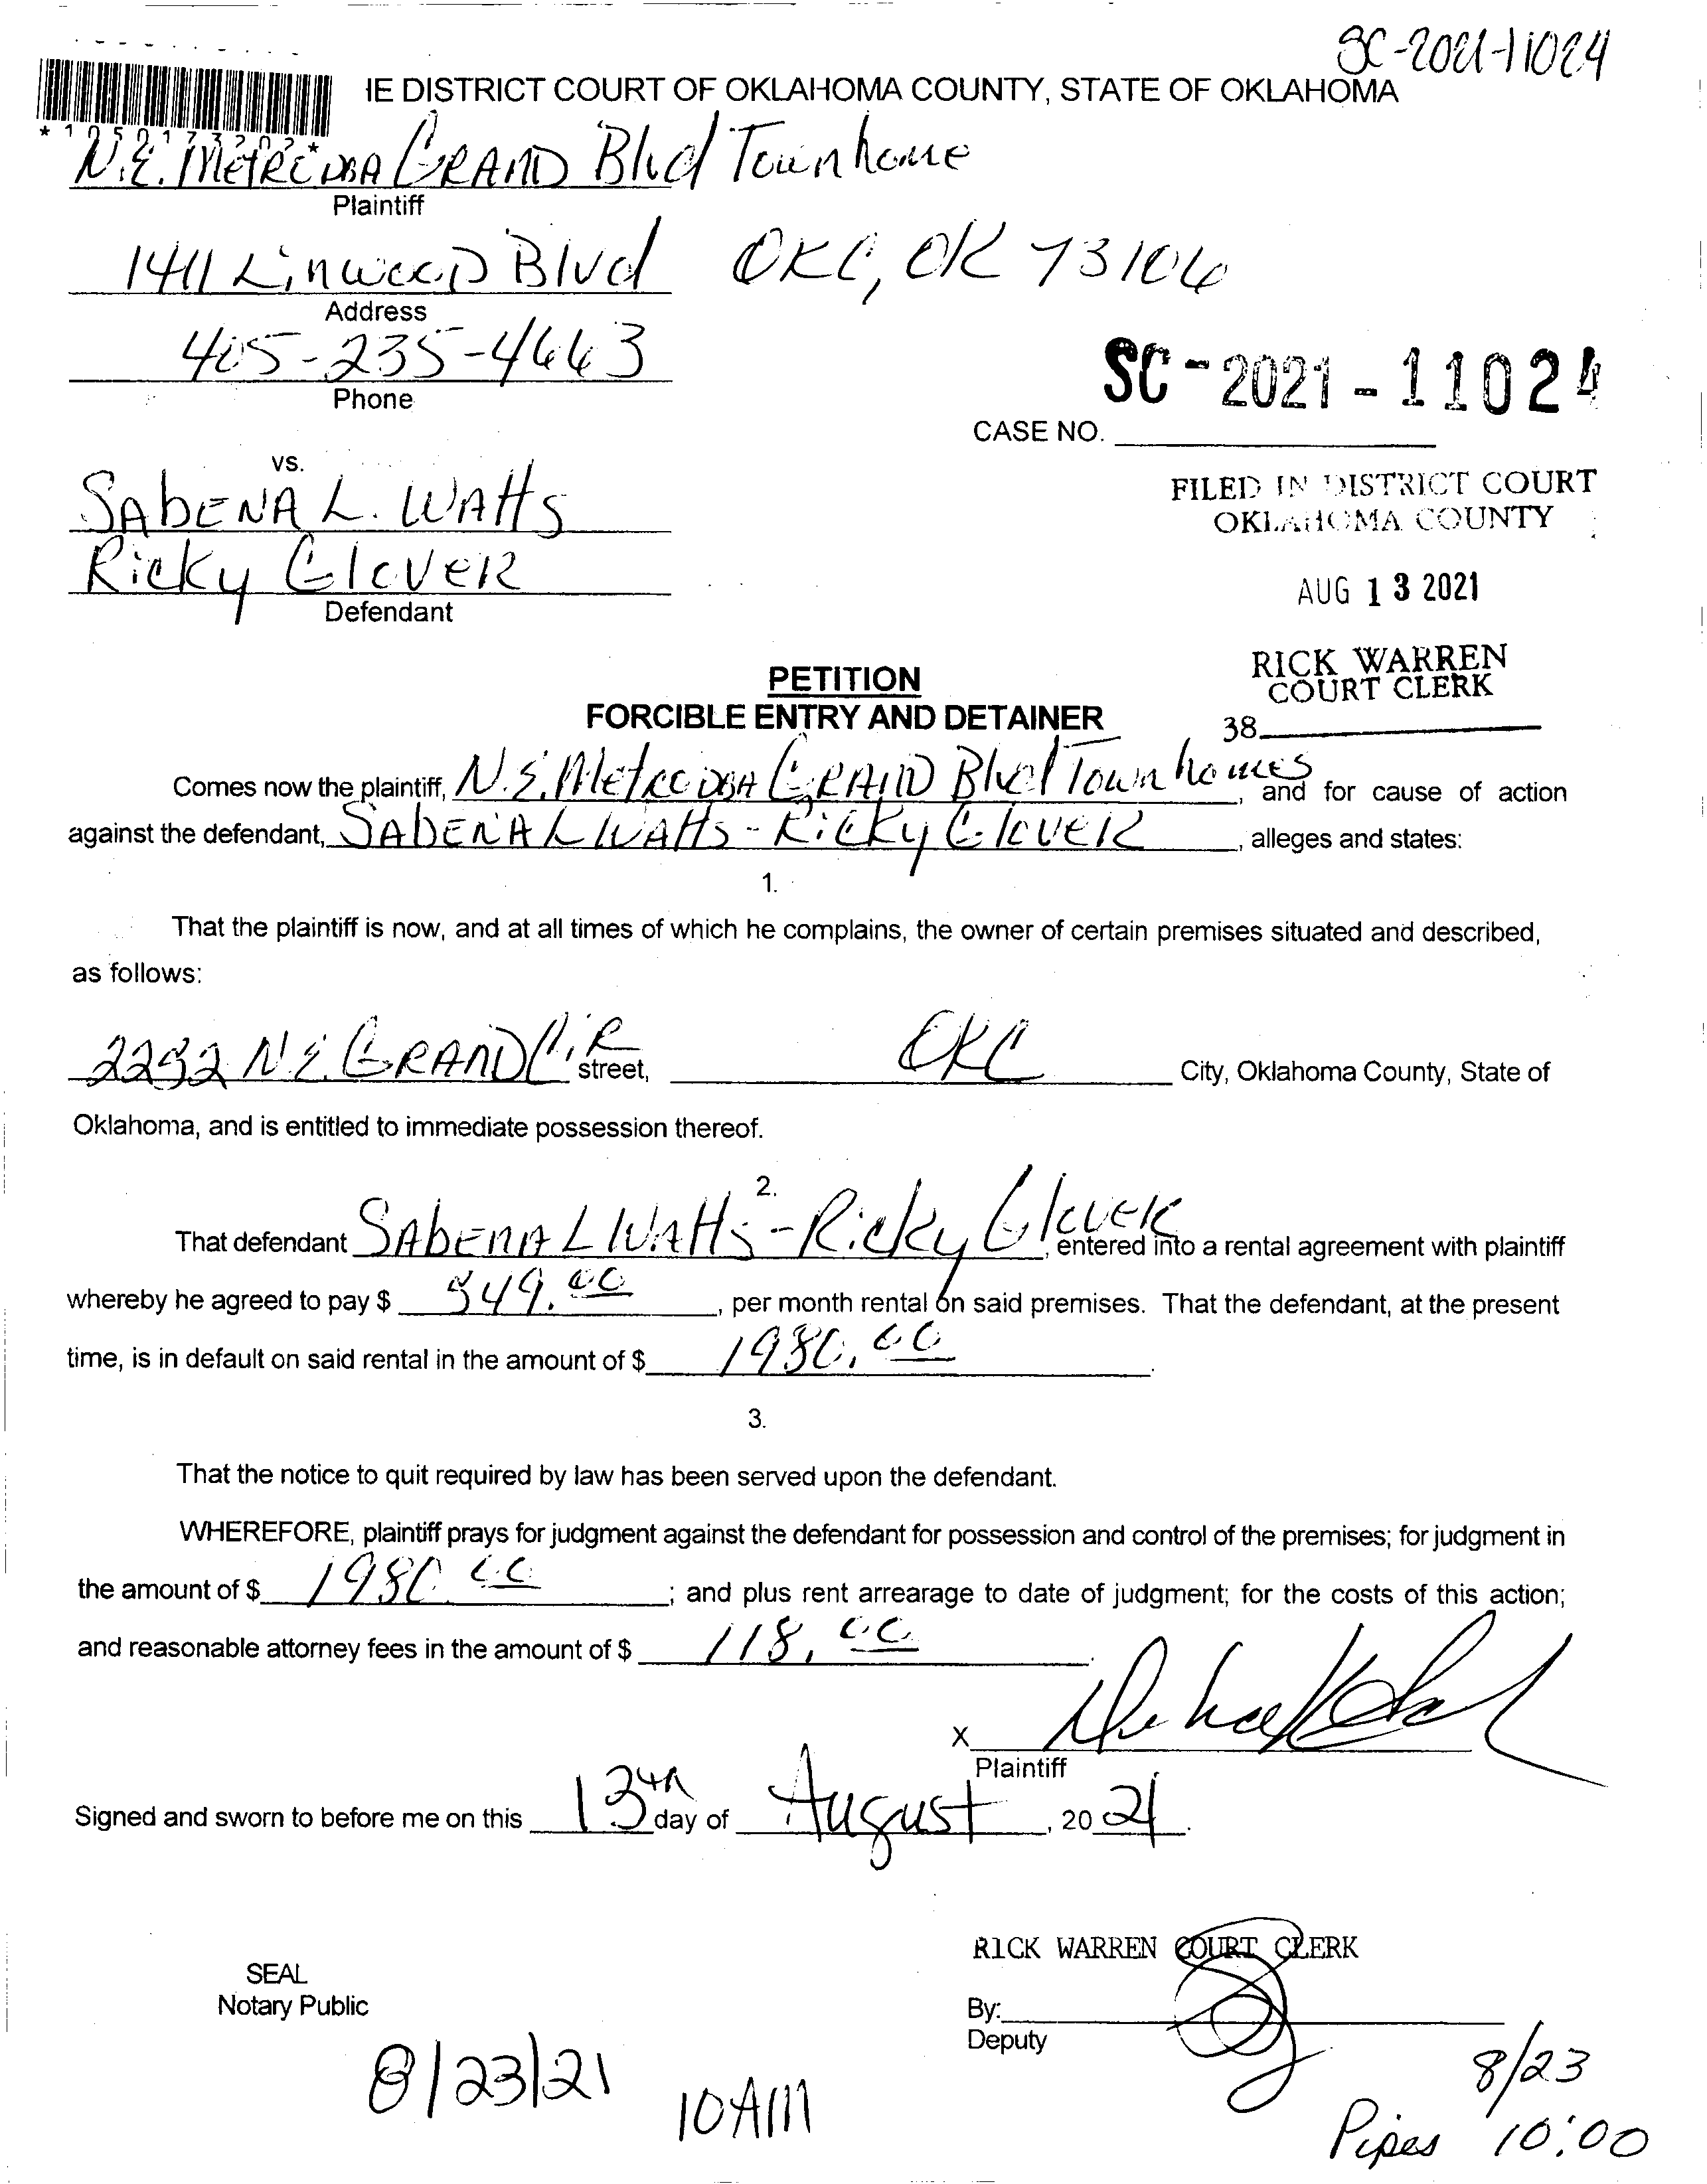 SC-2021-11024
IE DISTRICT COURT OF OKLAHOMA COUNTY, STATE OF OKLAHOMA
N.E. Metro DBA GRAND Blvd Townhome
Plaintiff
1411 Linwood Blvd OKC, OK 73106
Address
405-235-4663
Phone
SC-2021-11024
CASE NO.
vs.
SAbENA L. WAtts
Ricky Glover
Defendant
FILED IN DISTRICT COURT
OKLAHOMA COUNTY
AUG 13 2021
RICK WARREN
COURT CLERK
38
PETITION
FORCIBLE ENTRY AND DETAINER
Comes now the plaintiff, N.E. Metro DBA GRAND Blvd Townhomes, and for cause of action
against the defendant, SAbENA L WAtts - Ricky Glover, alleges and states:
1.
That the plaintiff is now, and at all times of which he complains, the owner of certain premises situated and described,
as follows:
N.E. GRAND Cir street, OKC City, Oklahoma County, State of
Oklahoma, and is entitled to immediate possession thereof.
2.
That defendant SAbENA L WAtts - Ricky Glover, entered into a rental agreement with plaintiff
whereby he agreed to pay $ , per month rental on said premises. That the defendant, at the present
time, is in default on said rental in the amount of $ 1980.00.
3.
That the notice to quit required by law has been served upon the defendant.
WHEREFORE, plaintiff prays for judgment against the defendant for possession and control of the premises; for judgment in
the amount of $ 1980.00; and plus rent arrearage to date of judgment; for the costs of this action;
and reasonable attorney fees in the amount of $ 118.00.
X
Plaintiff
Signed and sworn to before me on this 13th day of August, 20 21.
RICK WARREN COURT CLERK
SEAL
Notary Public
By:
Deputy
8/23/21 10AM
8/23
Pipes 10:00